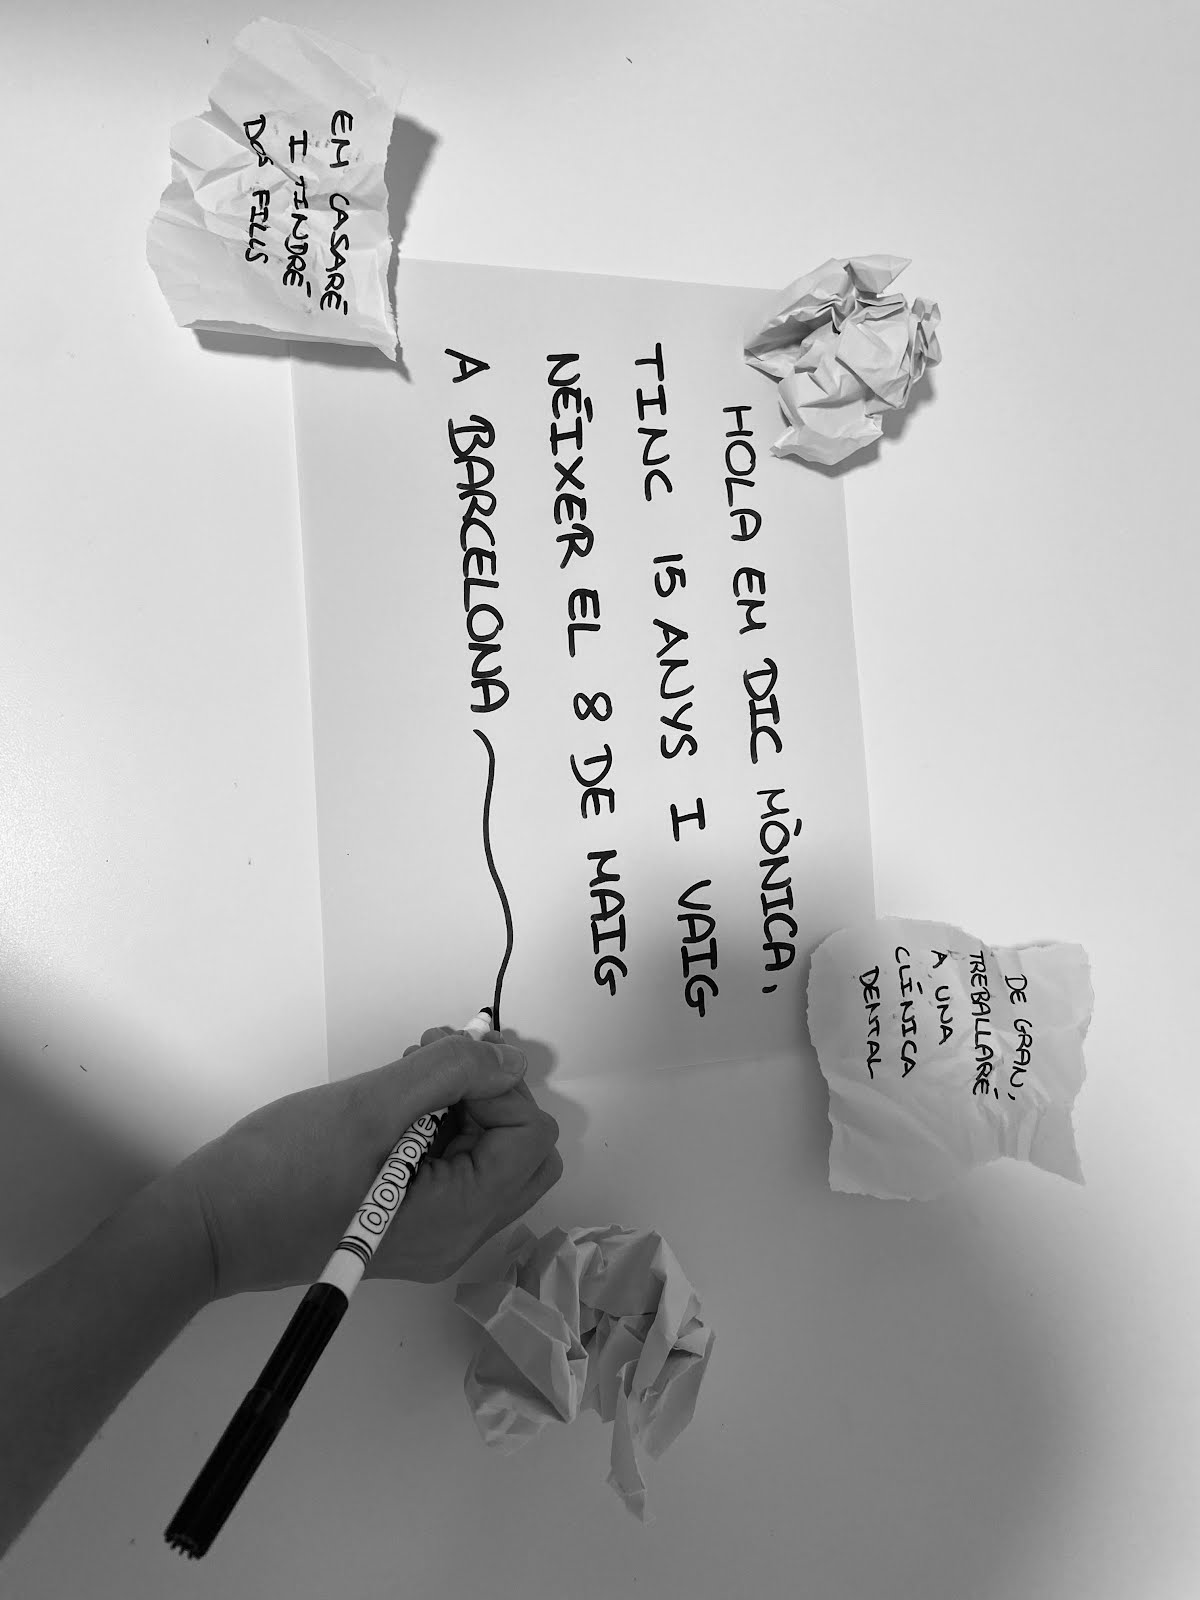 HOLA EM DIC MÒNICA,
TINC 15 ANYS I VAIG
NÉIXER EL 8 DE MAIG
A BARCELONA
EM CASARÉ
I TINDRÉ
DOS FILLS
DE GRAN,
TREBALLARÉ
A UNA
CLÍNICA
DENTAL
double